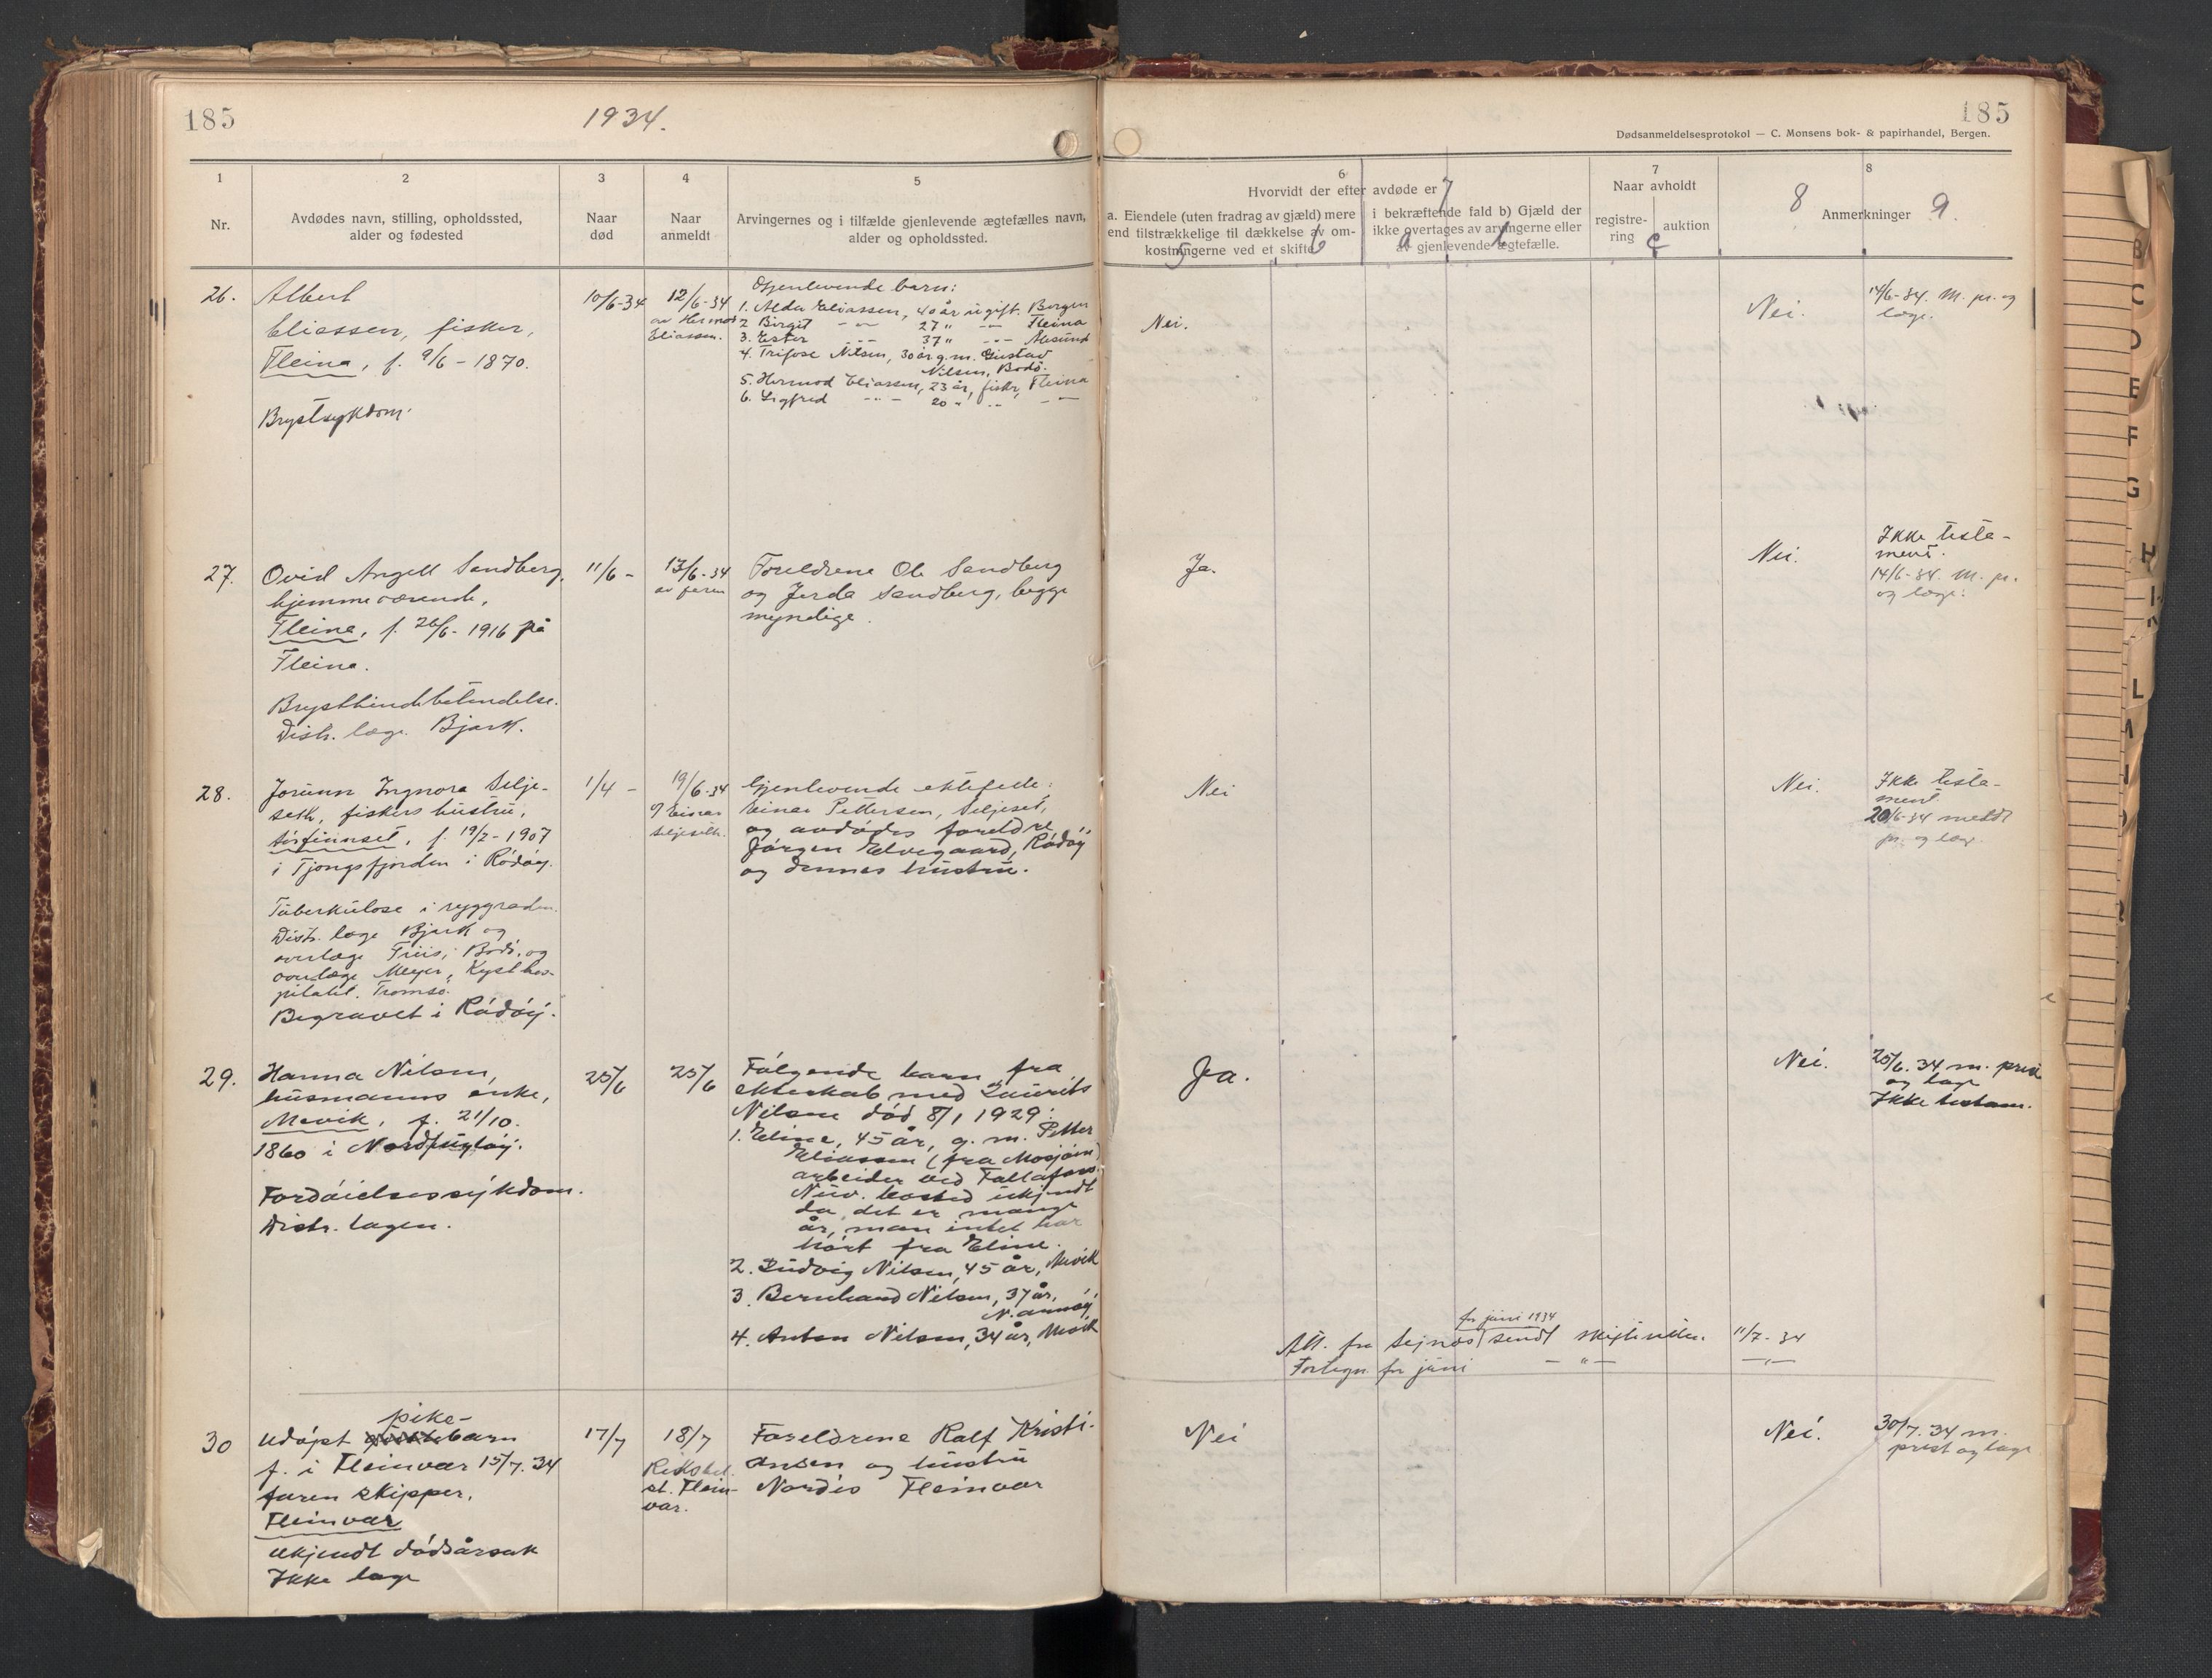 185
1934.
185
Dødsanmeldelsesprotokol — C. Monsens bok- & papirhandel, Bergen.
1
Nr.
2
Avdødes navn, stilling, opholdssted,
alder og fødested
3
Naar
død
4
Naar
anmeldt
5
Arvingernes og i tilfælde gjenlevende ægtefælles navn,
alder og opholdssted.
6
Hvorvidt der efter avdøde er
a. Eiendele (uten fradrag av gjæld) mere
end tilstrækkelige til dækkelse av om-
kostningerne ved et skifte
i bekræftende fald b) Gjæld der
ikke overtages av arvingerne eller
av gjenlevende ægtefælle.
7
Naar avholdt
registre-
ring
auktion
8
Anmerkninger
5 6 7 a b c 8 9.
26.
Albert
Eliassen, fisker,
Fleina, f. 9/6 - 1870.
Brystsykdom.
10/6-34
12/6-34
av Hermod
Eliassen.
Gjenlevende barn:
1. Alda Eliassen, 40 år ugift. Bergen
2 Birgit -"- 27 " -"- Fleina
3. Ester -"- 37 " -"- Ålesund
4. Trifose Nilsen, 30 år g.m. Gustav
Nilsen, Bodö.
5. Hermod Eliassen, 23 år, fisker, Fleina
6. Sigfred -"- 20 " -"- -"-
Nei.
Nei.
14/6-34. M. pr. og
læge.
27.
Ovid Angell Sandberg,
hjemmeværende,
Fleina, f. 26/6 - 1916 på
Fleina.
Brysthindebetendelse.
Distr. læge Bjark.
11/6 -
13/6-34
av faren
Foreldrene Ole Sandberg
og Jerda Sandberg, begge
myndige.
Ja.
Nei.
Ikke testa-
ment.
14/6-34. M. pr.
og læge.
28.
Jorunn Ingnora Selje-
seth, fiskers hustru,
f. 19/2 - 1907
i Tjongsfjorden i Rödöy.
Tuberkulose i ryggraden.
Distr. læge Bjark og
overlæge Friis, Bodö, og
overlæge Meyer, Kysthos-
pitalet. Tromsö.
Begravet i Rödöy.
1/4 -
19/6-34
Einar
Seljeseth.
Gjenlevende ektefelle:
Einar Pettersen, Seljeset,
og avdödes foreldre
Jörgen Elvegaard, Rödöy
og dennes hustru.
Nei
Nei.
Ikke testa-
ment.
20/6-34 meldt
pr. og læg.
29.
Hanna Nilsen,
husmanns enke,
Mevik, f. 21/10.
1860 i Nordfugløy.
Fordöielsessykdom.
Distr. lægen.
25/6
25/6
Fölgende barn fra
ekteskab med Laurits
Nilsen död 8/1 1929:
1. Eline, 45 år, g. m. Petter
Eliassen (fra Mosjöen)
arbeider ved
Nuv. bosted ukjendt
da det er mange
år, man intet har
hört fra Eline.
2. Ludvig Nilsen, 45 år, Mevik
3. Bernhard Nilsen, 37 år,
N. arnöy
4. Anton Nilsen, 34 år, Mevik
Ja.
Nei.
25/6. 34 m. prest
og læge
Ikke testam.
for juni 1934
Att. fra sendt 11/7-34
Fortegn. for juni -"- -"-
30
Udöpt pike-
barn
f. i Fleinvær 15/7. 34
faren skipper.
Fleinvær
ukjendt dödsårsak
Ikke læge
17/7
18/7
Rikstel.
st. Flein-
vær.
Foreldrene Ralf Kristi-
ansen og hustru
Nordis Fleinvær
Nei
Nei.
30/7. 34 m.
prest og læge
B
C
D
E
F
G
H
L